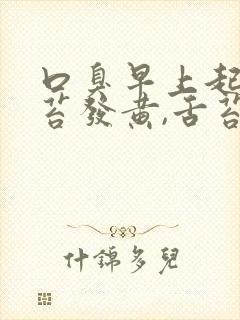 口臭早上起
苔發黄,舌苔
什錦多兒